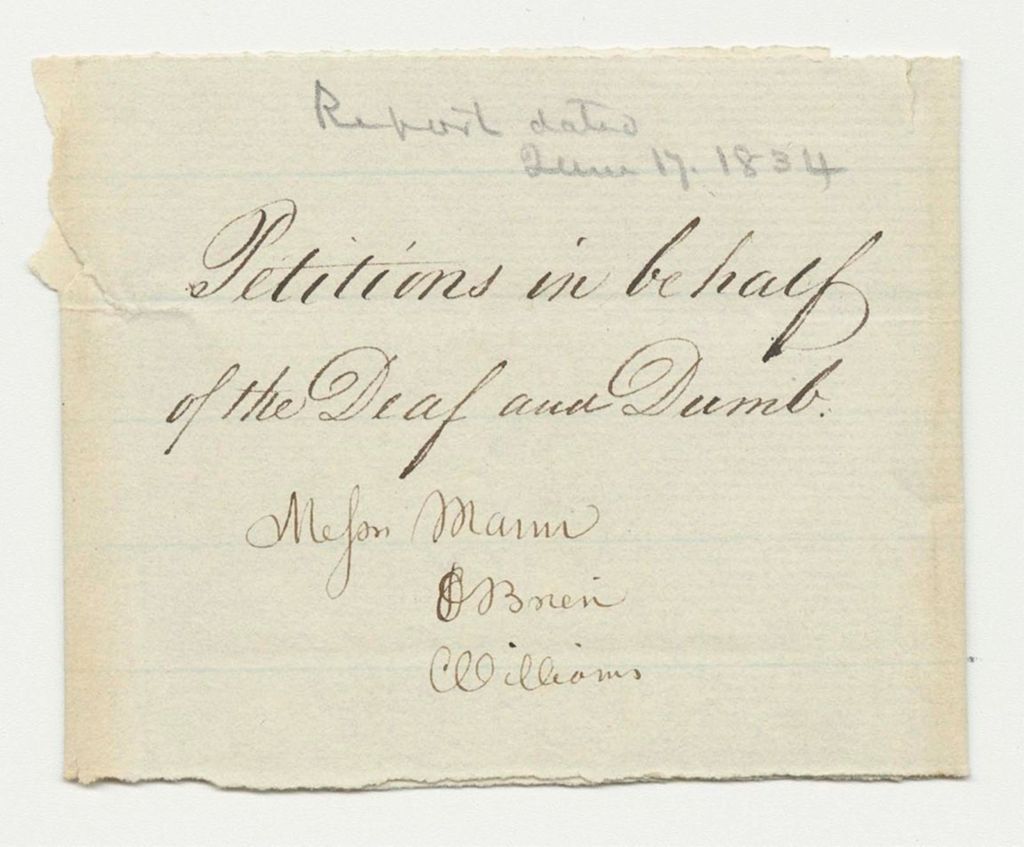 Report dated
June 17. 1834
Petitions in behalf
of the Deaf and Dumb.
Messrs Mann
O'Brien
Williams